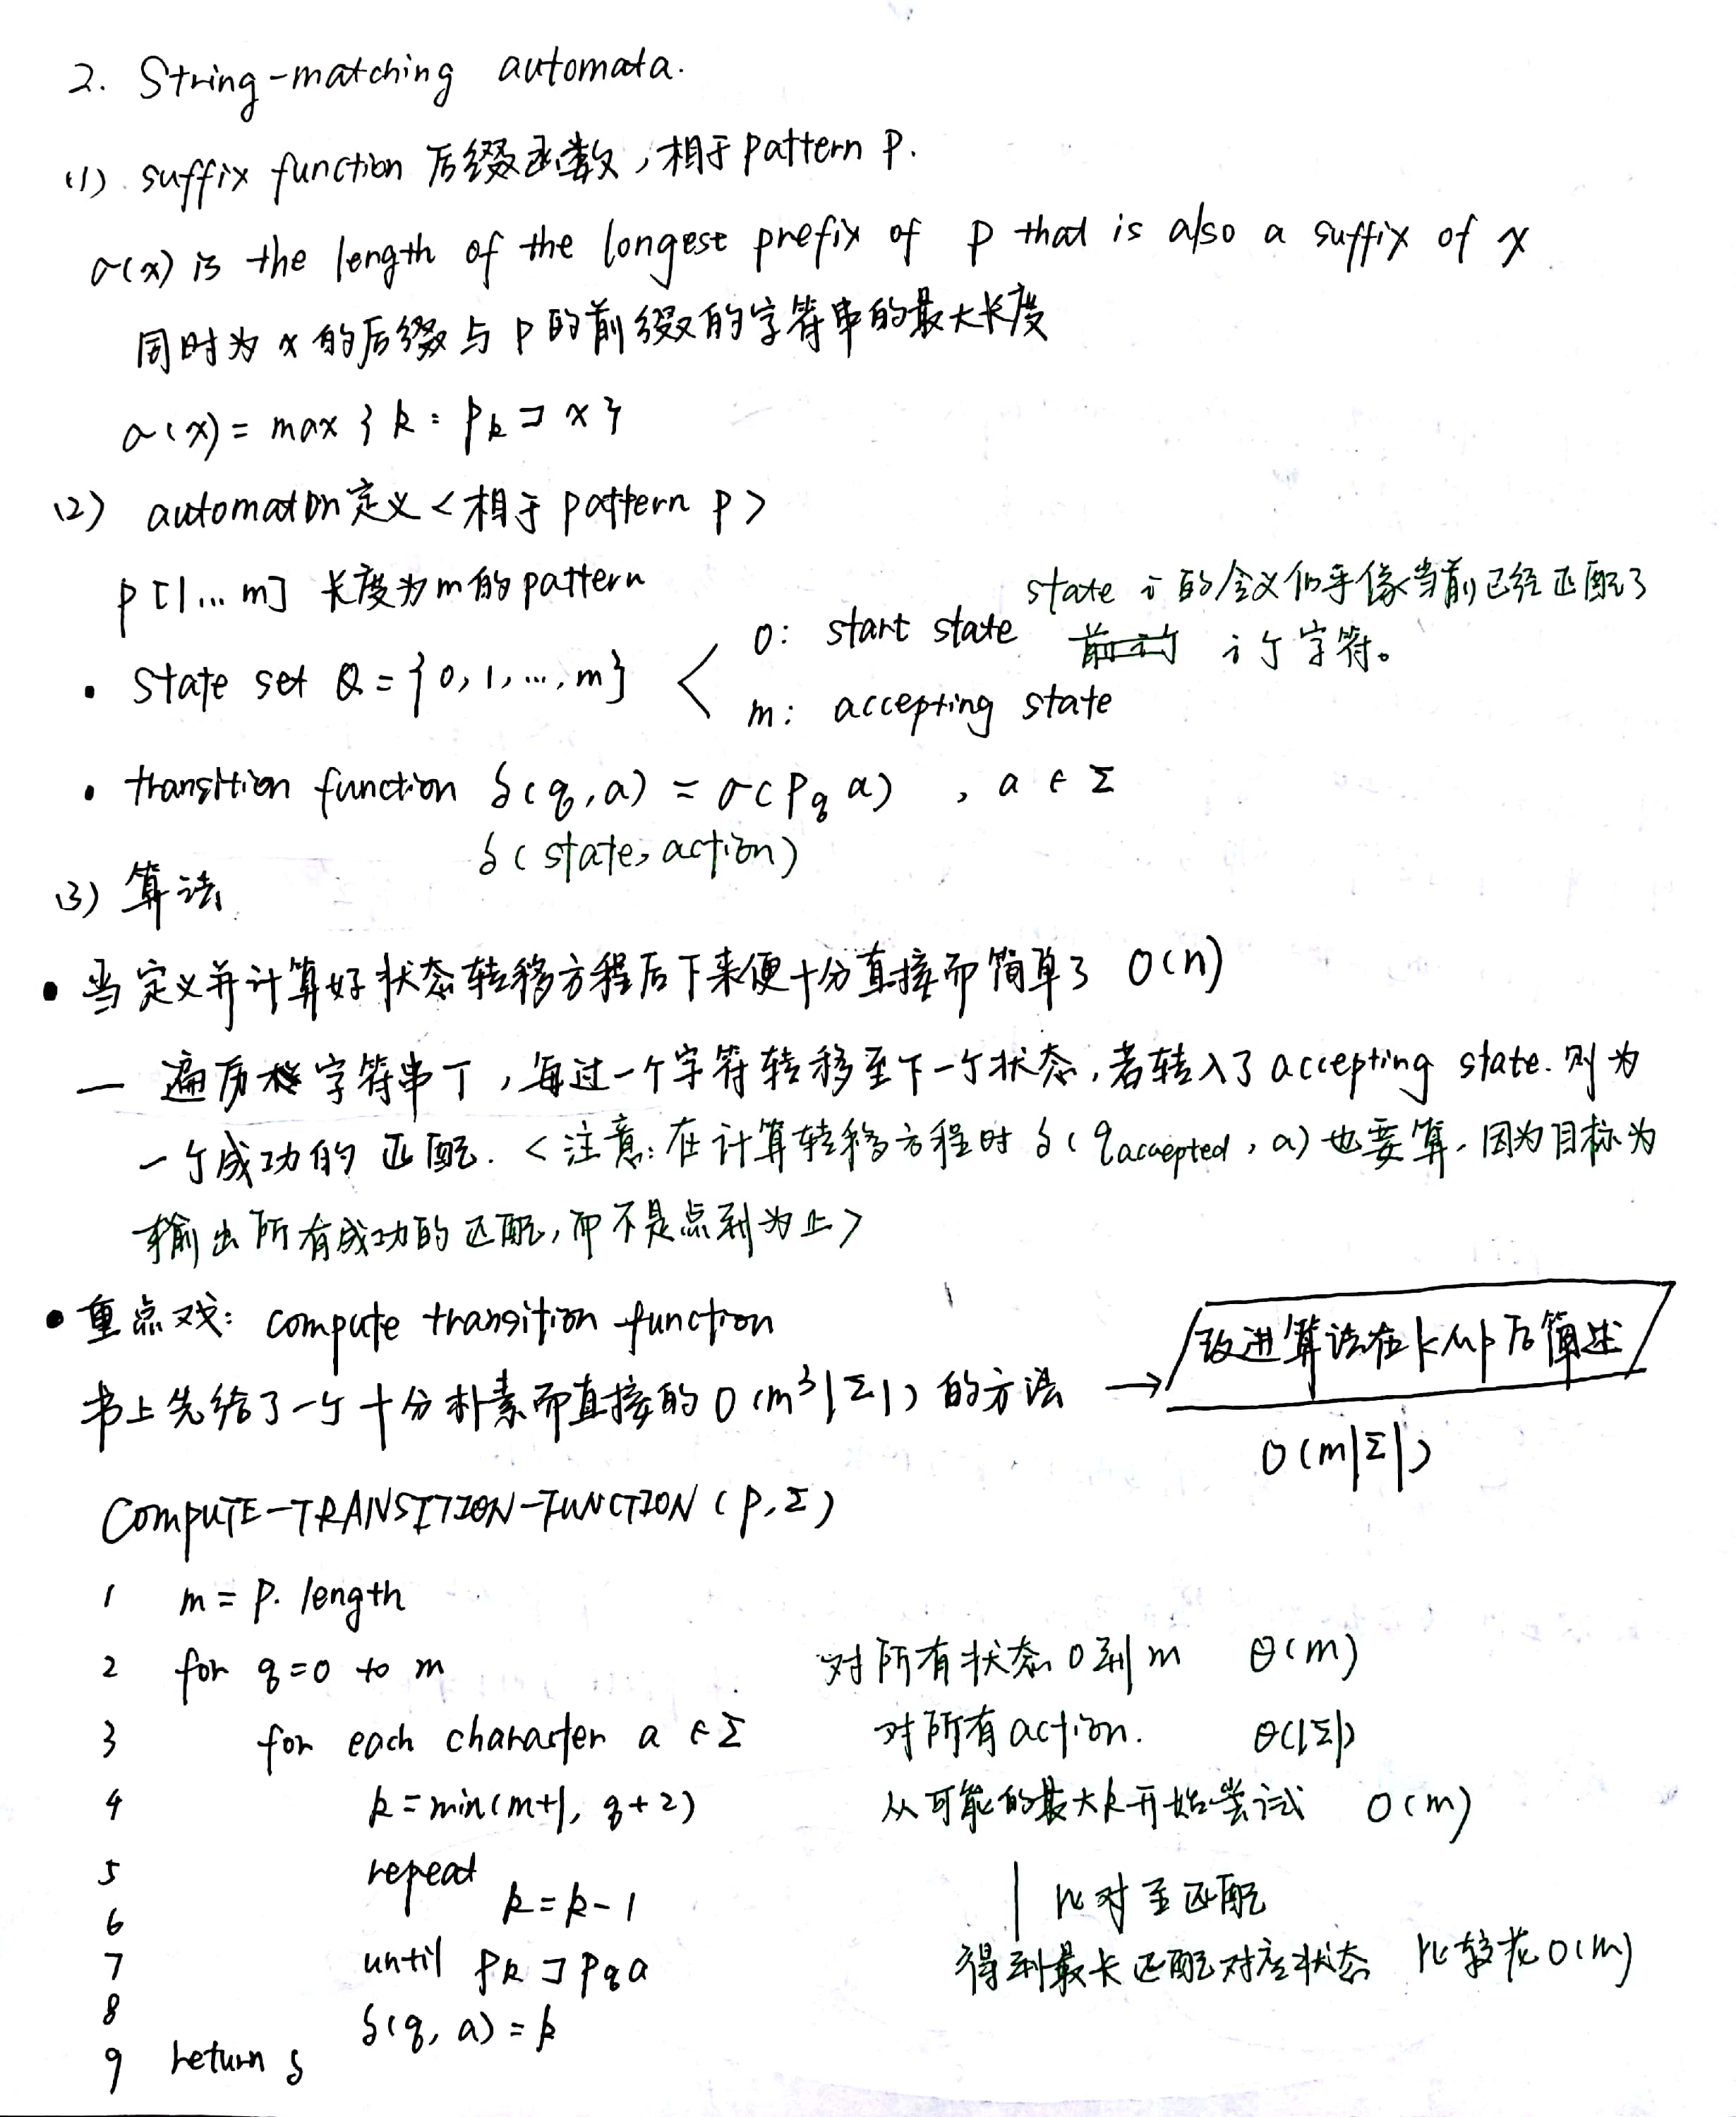 2. String-matching automata.
(1) suffix function 后缀函数,相于pattern P.
σ(x) is the length of the longest prefix of P that is also a suffix of x
同时为x的后缀与P的前缀的字符串的最大长度
σ(x) = max { k : Pk ⊐ x }
(2) automaton定义<相于pattern P>
P[1...m] 长度为m的pattern
state i 的含义似乎像当前已经匹配了
i个字符。
• State set Q = {0, 1, ..., m} <
0: start state
m: accepting state
• transition function δ(q, a) = σ(Pq a) , a ∈ Σ
δ(state, action)
(3) 算法
• 当定义并计算好状态转移方程后下来便十分直接而简单了 O(n)
— 遍历 字符串T,每过一个字符转移至下一个状态,若转入了accepting state.则为
一个成功的匹配. <注意:在计算转移方程时 δ(qaccepted, a)也要算.因为目标为
输出所有成功的匹配,而不是点到为止>
• 重点戏: compute transition function
书上先给了一个十分朴素而直接的O(m³|Σ|)的方法 →
改进算法在KMP后简述
O(m|Σ|)
COMPUTE-TRANSITION-FUNCTION (P, Σ)
1 m = P.length
2 for q=0 to m 对所有状态0到m Θ(m)
3 for each character a ∈ Σ 对所有action. Θ(|Σ|)
4 k = min(m+1, q+2) 从可能的最大k开始尝试 O(m)
5 repeat
6 k = k-1 | 比对至匹配
7 until Pk ⊐ Pqa 得到最长匹配对应状态 比较花O(m)
8 δ(q, a) = k
9 return δ